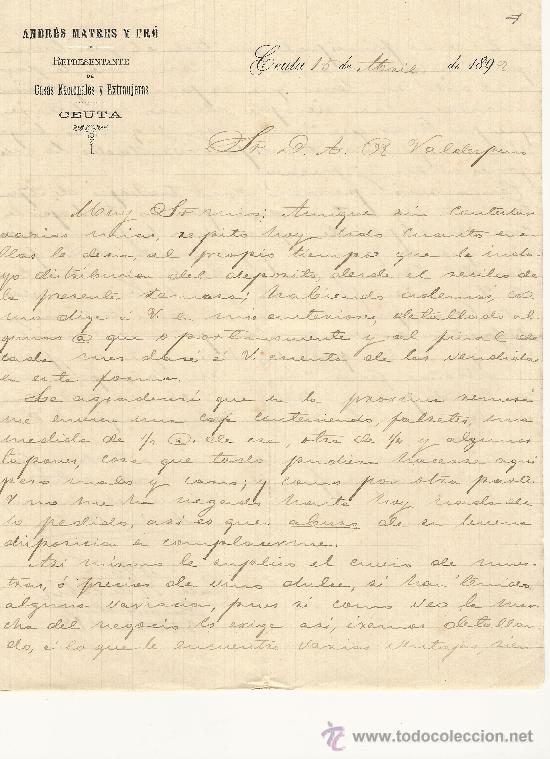 ANDRÉS MATRES Y PRÓ
REPRESENTANTE
DE
Casas Nacionales y Extranjeras
CEUTA
Ceuta 15 de Abril de 1892
Sr. D. A. R Valdespino
Muy Sr mio; Aunque sin contestar
varias mias, repito hoy todo cuanto en e-
llas le decia, al propio tiempo que le incluyo
distribucion del deposito, desde el recibo de
la presente semana; habiendo ademas, co
mo dije á V. en mis anteriores, detallado al
gunas @ que oportunamente y al final de
cada mes daré á V. cuenta de las vendidas
en esta forma.
Le agradeceré que en la proxima remesa
me envie una caja conteniendo, una
medida de 1/2 @ de esa, otra de 1/4 y algunos
tapones, cosa que todo pudiera hacerse aqui
pero malos y caros; y como por otra parte
V no me ha negado hasta hoy nada de
lo pedido, así es que abuso de su buena
disposicion á complacerme.
Asi mismo le suplico el envio de mues-
tras, ó precios de vino dulce, si han tenido
alguna variacion, pues si como veo la mar
cha del negocio lo exige asi, iremos detallan
do, á lo que le encuentro varias ventajas, sien
todocoleccion.net